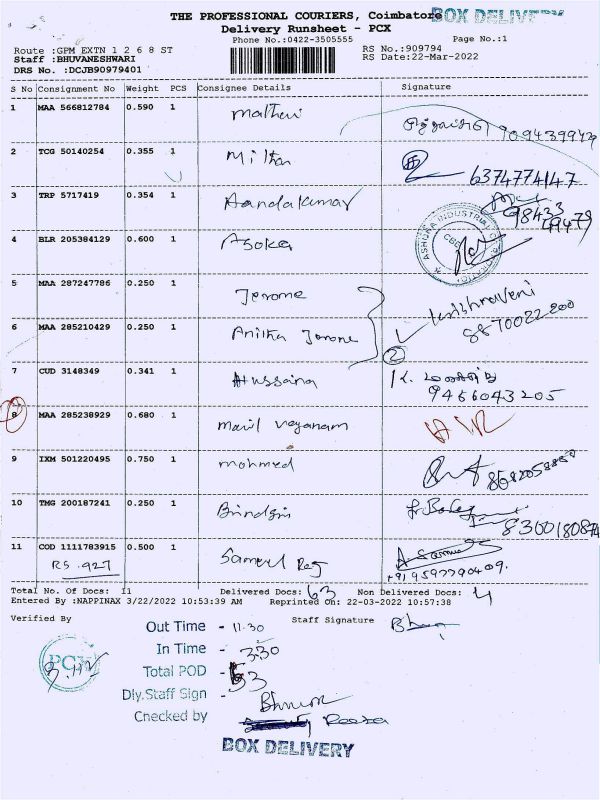 THE PROFESSIONAL COURIERS, Coimbatore BOX DELIVERY
Delivery Runsheet - PCX
Phone No.:0422-3505555
Page No.:1
Route :GPM EXTN 1 2 6 8 ST
RS No.:909794
Staff :BHUVANESHWARI
RS Date:22-Mar-2022
DRS No. :DCJB90979401
S No Consignment No Weight PCS Consignee Details Signature
1 MAA 566812784 0.590 1
2 TCG 50140254 0.355 1 Milton
6374774147
3 TRP 5717419 0.354 1 Aandakumar
98433
4 BLR 205384129 0.600 1 Asoka
ASHUNA INDUSTRIAL CORPORATION
CBE
5 MAA 287247786 0.250 1 Jerome
Krishnaveni
8870022200
6 MAA 285210429 0.250 1 Anitha Jerome
2
7 CUD 3148349 0.341 1 Hussaina
9466043205
8 MAA 285238929 0.680 1 Mavil Vaganam
9 IXM 501220495 0.750 1 mohmed
10 TMG 200187241 0.250 1
11 COD 1111783915 0.500 1 Samuel Raj
RS. 927
+919597790409.
Total No. Of Docs: 11 Delivered Docs: 63 Non Delivered Docs: 4
Entered By :NAPPINAX 3/22/2022 10:53:39 AM Reprinted On: 22-03-2022 10:57:38
Verified By
Staff Signature
Out Time - 11.30
In Time - 3.30
PCX
Total POD - 63
Dly.Staff Sign -
Checked by
BOX DELIVERY